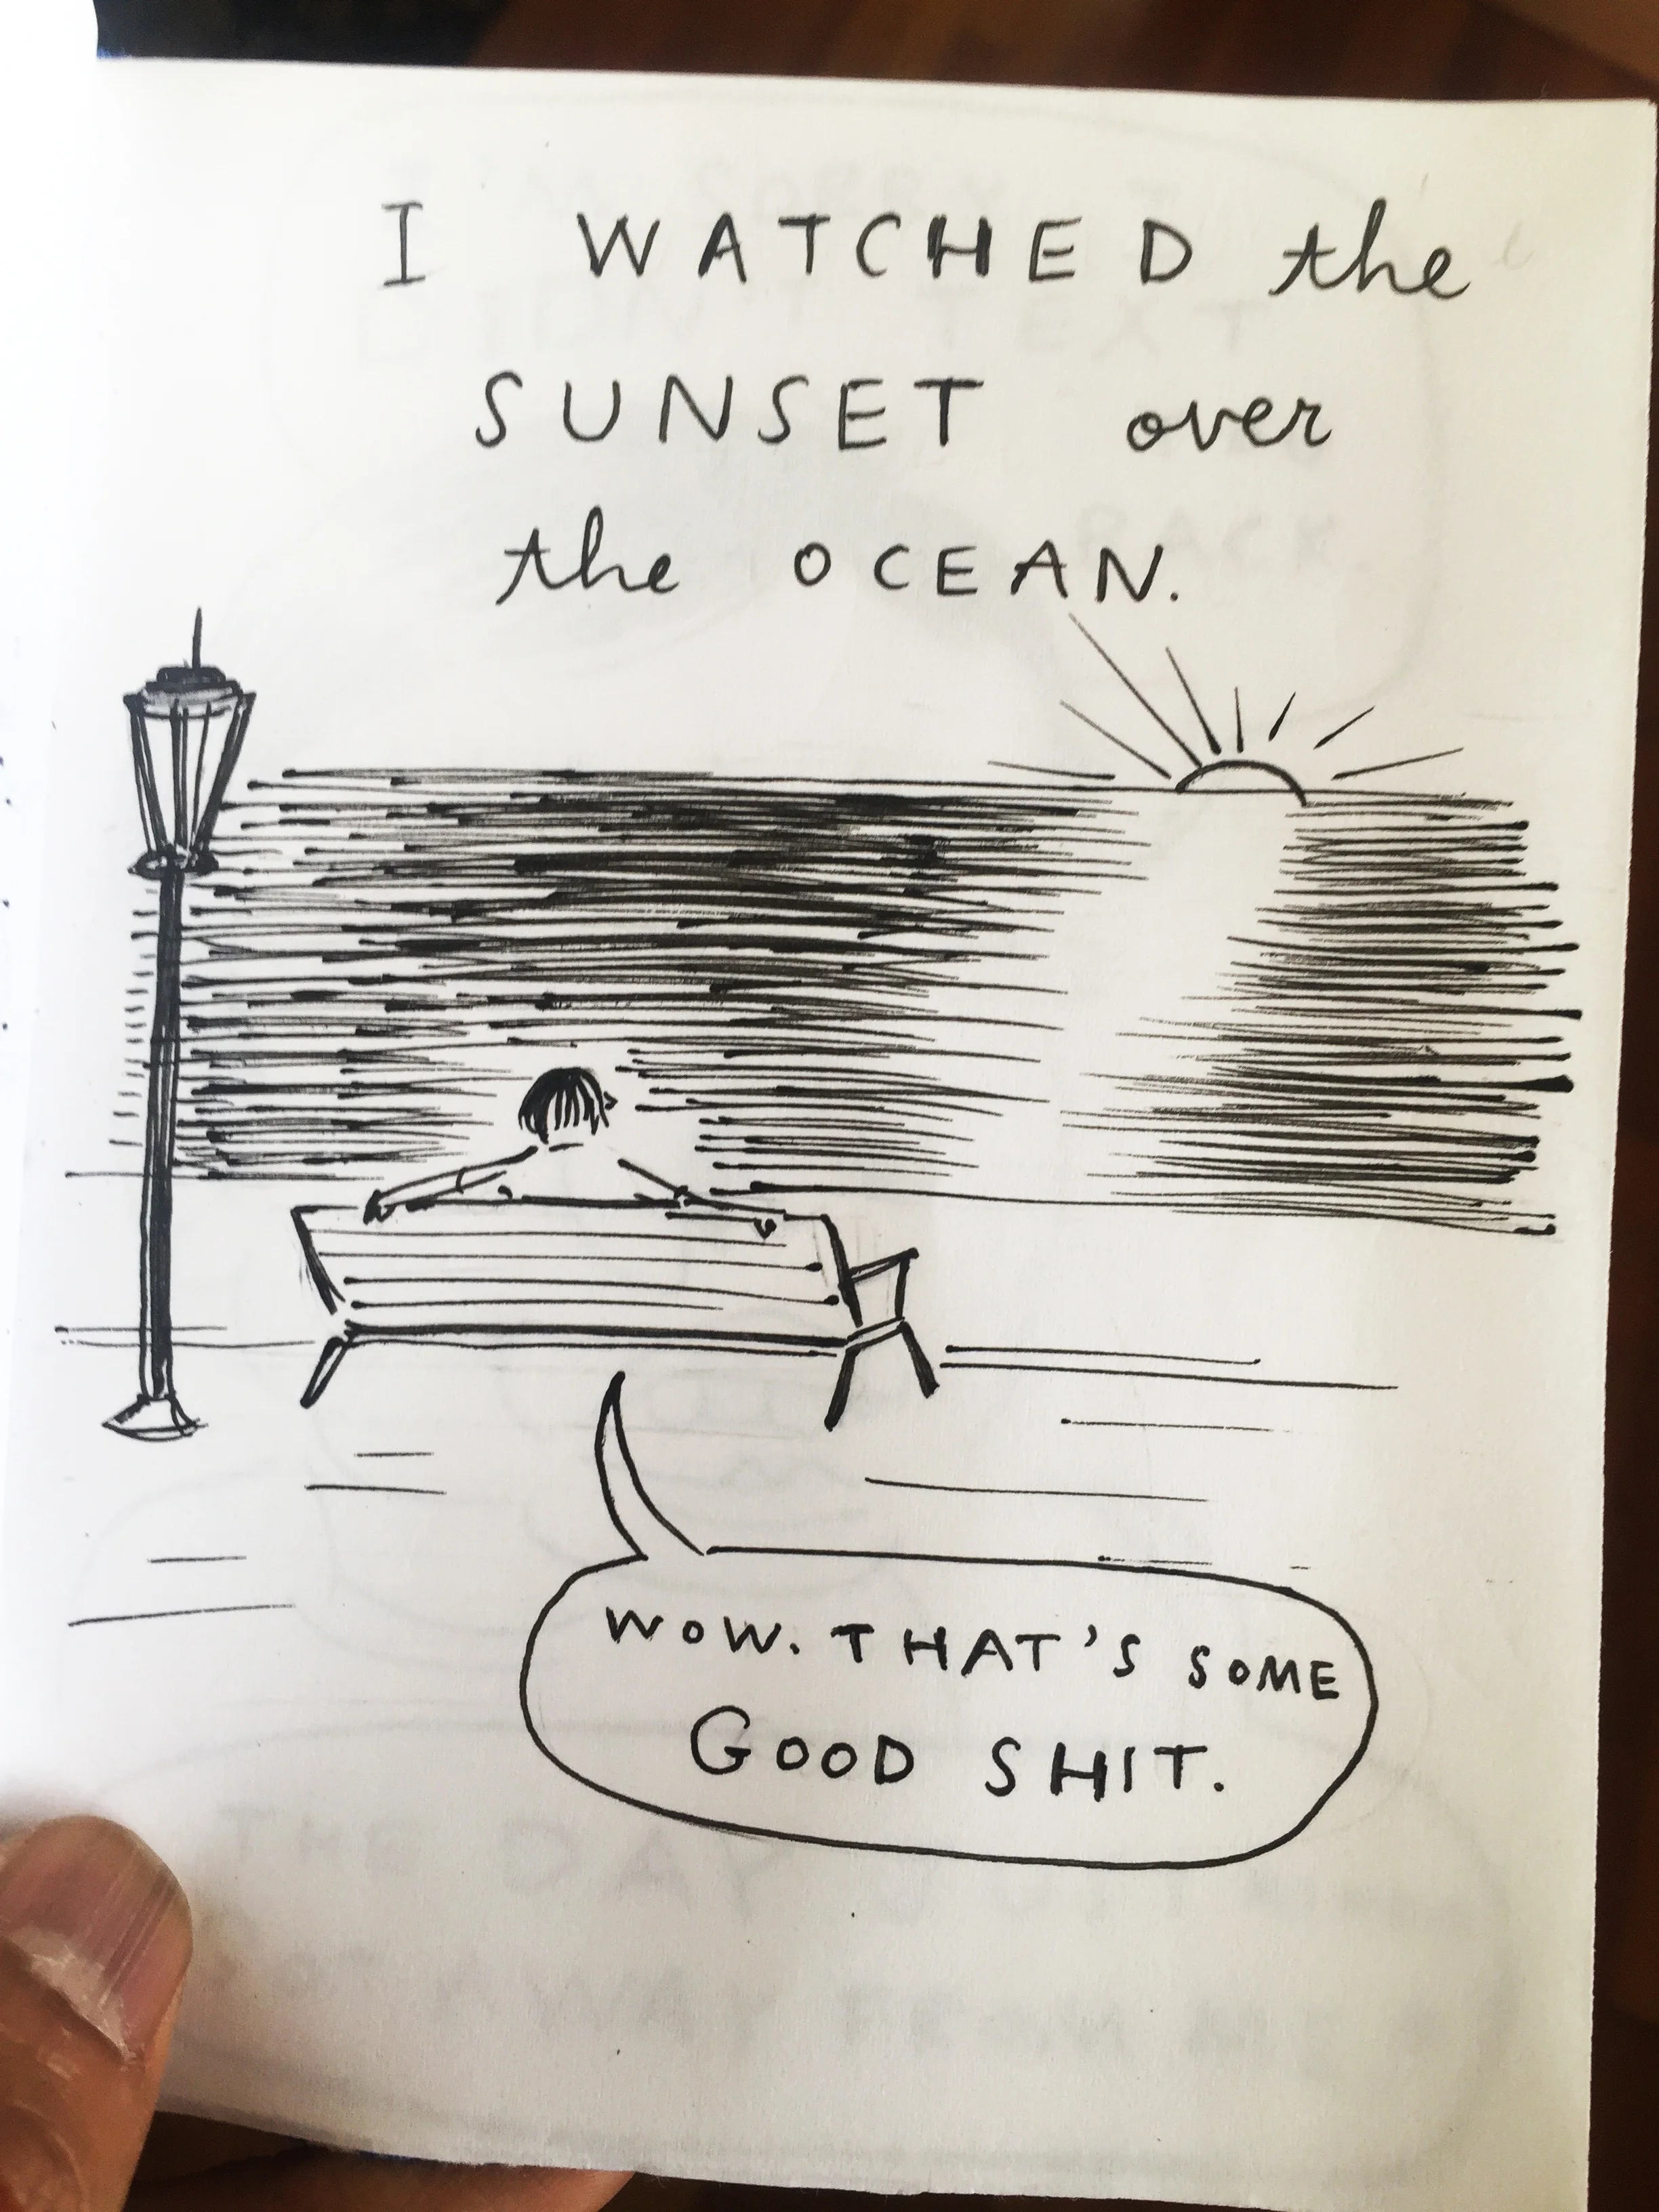 I WATCHED the
SUNSET over
the OCEAN.
WOW. THAT'S SOME
GOOD SHIT.